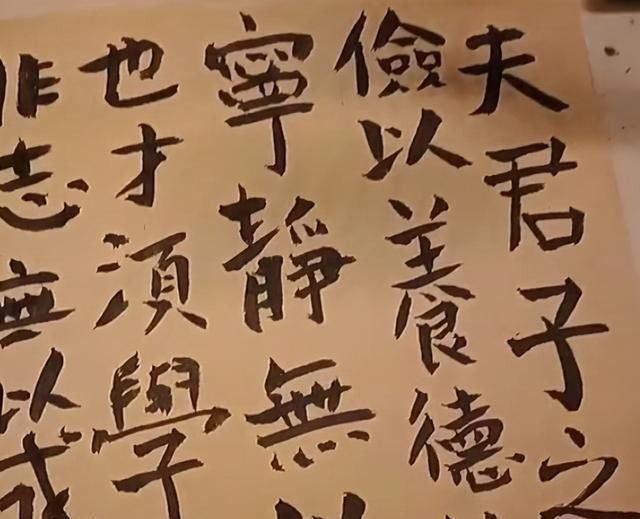 夫君子之
儉以養德
寧靜無以
也才須學
非志無以成